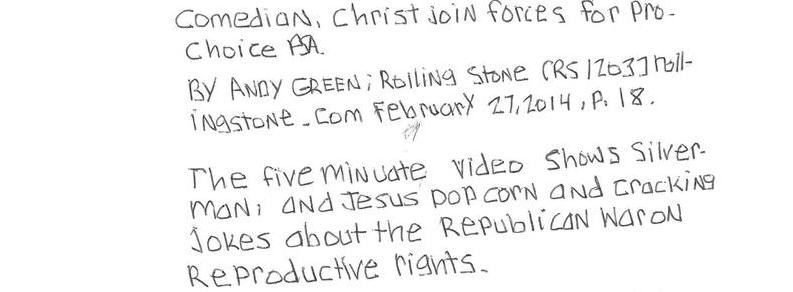 Comedian, Christ join forces for Pro-
Choice PSA.
By ANDY GREEN; Rolling Stone (RS 1203] roll-
ingstone.com February 27, 2014, P. 18.
The five minuate video shows Silver-
man, and Jesus pop corn and cracking
jokes about the Republican War on
Reproductive rights.